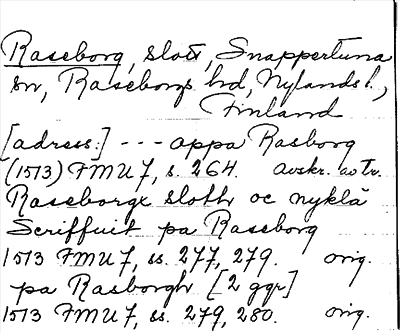 Raseborg, slott, Snappertuna
sn, Raseborgs hd, Nylands l.,
Finland
[adress:] --- appa Rasborg
(1513) FMU 7, s. 264. avskr. av tr.
Raseborgx sloth oc nyklä
Scriffuit pa Raseborg
1513 FMU 7, ss. 277, 279. orig.
pa Rasborgh [2 ggr]
1513 FMU 7, ss. 279, 280. orig.